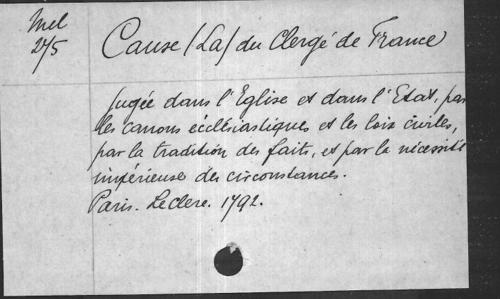 Mel
275
Cause (La) du Clergé de France
jugée dans l'Eglise et dans l'Etat, par
les canons écclésiastiques et les lois civiles,
par la tradition des faits, et par la nécessité
impérieuse des circonstances.
Paris. Leclere. 1792.